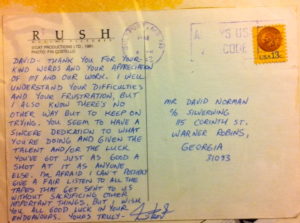 RUSH
©CAT PRODUCTIONS LTD. 1981
PHOTO: FIN COSTELLO
USA 13c
DAVID - THANK YOU FOR YOUR
KIND WORDS AND YOUR APPRECIATION
OF ME AND OUR WORK. I WELL
UNDERSTAND YOUR DIFFICULTIES
AND YOUR FRUSTRATION, BUT
I ALSO KNOW THERE'S NO
OTHER WAY BUT TO KEEP ON
TRYING. YOU SEEM TO HAVE A
SINCERE DEDICATION TO WHAT
YOU'RE DOING AND GIVEN THE
TALENT AND/OR THE LUCK
YOU'VE GOT JUST AS GOOD
A SHOT AT IT AS ANYONE
ELSE. I'M AFRAID I CAN'T POSSIBLY
GIVE A FAIR LISTEN TO ALL THE
TAPES THAT GET SENT TO US
WITHOUT SACRIFICING OTHER
IMPORTANT THINGS, BUT I WISH
YOU ALL GOOD LUCK IN YOUR
ENDEAVOURS. YOURS TRULY -
MR DAVID NORMAN
% SILVERWING
115 CORNITH ST.
WARNER ROBINS,
GEORGIA
31093